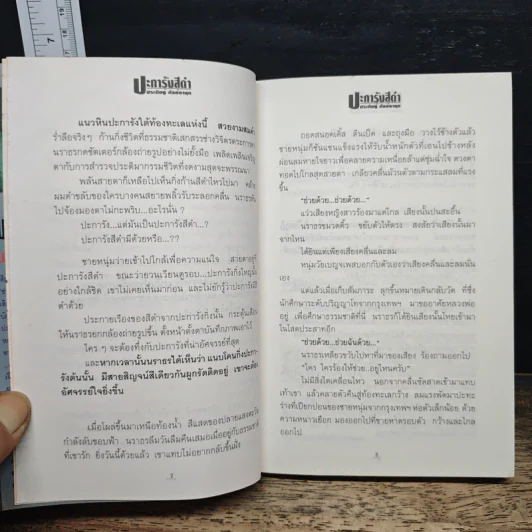 ปะการังสีดำ
แนวหินปะการังใต้ท้องทะเลแห่งนี้ สวยงามสมคำ
ร่ำลือจริงๆ ก้านกิ่งชีวิตที่ธรรมชาติเสกสรรช่างวิจิตรตระการตา
นราธรกดชัตเตอร์กล้องถ่ายรูปอย่างไม่ยั้งมือ เพลิดเพลินเจริญ
ตากับการสำรวจประติมากรรมชีวิตที่งดงามสุดจะพรรณนา
พลันสายตาก็เหลือบไปเห็นกิ่งก้านสีดำไหวไปมา คล้าย
ผมดำขลับของใครบางคนสยายพลิ้วรับระลอกคลื่น
ไปจ้องมองตาไม่กะพริบ...อะไรนั่น ?
ปะการัง...แต่มันเป็นปะการังสีดำ...?
ปะการังสีดำมีด้วยหรือ...??
ชายหนุ่มว่ายเข้าไปใกล้เพื่อความแน่ใจ
ปะการังสีดำ ขณะว่ายวนเวียนดูรอบ...ปะการังกิ่งใหญ่
อย่างใกล้ชิด เขาไม่เคยเห็นมาก่อน และไม่ยักรู้ว่าปะการังมีสี
ดำด้วย
ประกายเรืองของสีดำจากปะการังกิ่งนั้น กระตุ้นเตือน
ให้นราธรยกกล้องถ่ายรูปขึ้น ตั้งหน้าตั้งตาบันทึกภาพเอาไว้
ใคร ๆ จะต้องทึ่งกับปะการังที่น่าอัศจรรย์ที่สุด
และหากเวลานั้นนราธรได้เห็นว่า แนบโคนกิ่งปะกา-
รังต้นนั้น มีสายสิญจน์สีเดียวกันผูกรัดติดอยู่ เขาจะต้อง
อัศจรรย์ใจยิ่งขึ้น
เมื่อโผล่ขึ้นมาเหนือท้องน้ำ สีแสดของปลายแสงตะวัน
กำลังดับขอบฟ้า นราธรลืมวันลืมคืนเสมอเมื่ออยู่กับธรรมชาติ
ที่เขารัก ยิ่งวันนี้ด้วยแล้ว เขาแทบไม่อยากกลับขึ้นฝั่ง
ปะการังสีดำ
ถอดสนอคเคิ้ล ตีนเป็ด และถุงมือ วางไว้ข้างตัวแล้ว
ชายหนุ่มก็ชันแขนแข็งแรงให้รับน้ำหนักตัวที่เอนไปข้างหลัง
ผ่อนลมหายใจยาวเพื่อคลายความเหนื่อยล้าแต่ชุ่มฉ่ำใจ ดวงตา
ทอดไปไกลสุดสายตา เกลียวคลื่นม้วนตัวตามกระแสลมที่แรง
ขึ้น
"ช่วยด้วย...ช่วยด้วย..."
แว่วเสียงหญิงสาวร้องมาแต่ไกล เสียงนั้นปนสะอื้น
นราธรขมวดคิ้ว ขยับตัวให้ตรง สงสัยว่าเสียงนั้นมา
จากไหน
ได้ยินแต่เพียงเสียงคลื่นและลม
หนุ่มวัยเบญจเพสบอกกับตัวเองว่าเสียงคลื่นและลมนั่น
เอง
แต่แล้วเมื่อเก็บสัมภาระ ลุกขึ้นหมายเดินกลับวัด ที่ซึ่ง
นักศึกษาระดับปริญญาโทจากกรุงเทพฯ มาขออาศัยหลวงพ่อ
อยู่ เพื่อศึกษาธรรมชาติที่นี่ นราธรก็ได้ยินเสียงนั้นใหม่เข้ามา
ในโสตประสาทอีก
"ช่วยด้วย...ช่วยฉันด้วย..."
นราธรเหลียวขวับไปหาที่มาของเสียง ร้องถามออกไป
"ใคร ใครร้องให้ช่วย...อยู่ไหนครับ"
ไม่มีสิ่งใดเคลื่อนไหว นอกจากคลื่นซัดสาดเข้ามาแทบ
เท้าเขา แล้วคลายตัวคืนสู่ท้องทะเลกว้าง ลมแรงพัดมาปะทะ
ร่างที่เปียกปอนของชายหนุ่มจากกรุงเทพฯ ห่อตัวเล็กน้อย ด้วย
ความหนาวเยือก มองออกไปที่ชายหาดรอบตัว กว้างและไกล
ออกไป